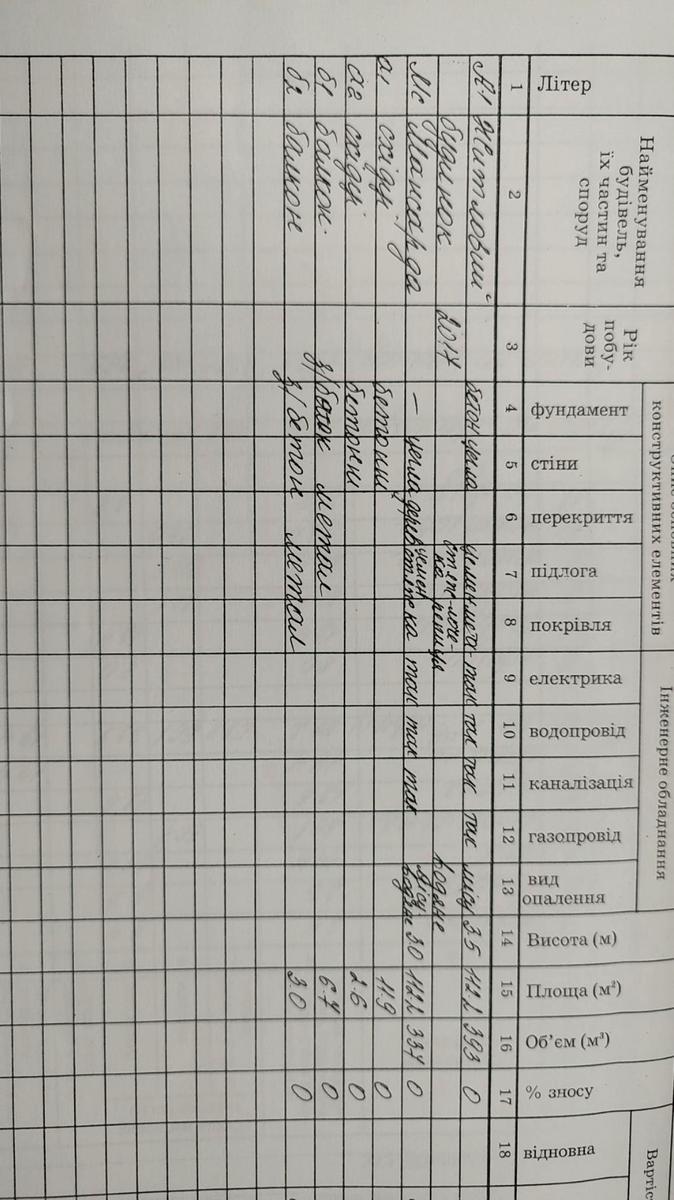 Літер
Найменування
будівель,
їх частин та
споруд
Рік
побу-
дови
конструктивних елементів
фундамент
стіни
перекриття
підлога
покрівля
Інженерне обладнання
електрика
водопровід
каналізація
газопровід
вид
опалення
Висота (м)
Площа (м²)
Об'єм (м³)
% зносу
відновна
1 2 3 4 5 6 7 8 9 10 11 12 13 14 15 16 17 18
А-1 Житловий бетон цегла так так так так місц 3.5 112.1 393 0
будинок 2017 водяне
Мс Мансарда — цегла дерев так так так місц водяне 3.0 112.1 334 0
а1 східці бетонні 11.9 0
а2 східці бетонні 2.6 0
б1 балкон метал 6.7 0
б2 балкон з/бетон метал 3.0 0